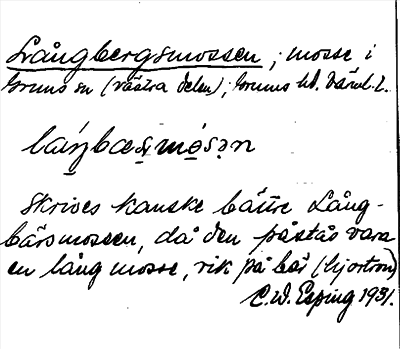 Långbergsmossen; mosse i
Grums sn (västra delen); Grums hd. Värml. l.
Skrives kanske bättre Lång-
bärsmossen, då den påstås vara
en lång mosse, rik på bär (hjortron)
C. W. Esping 1931.